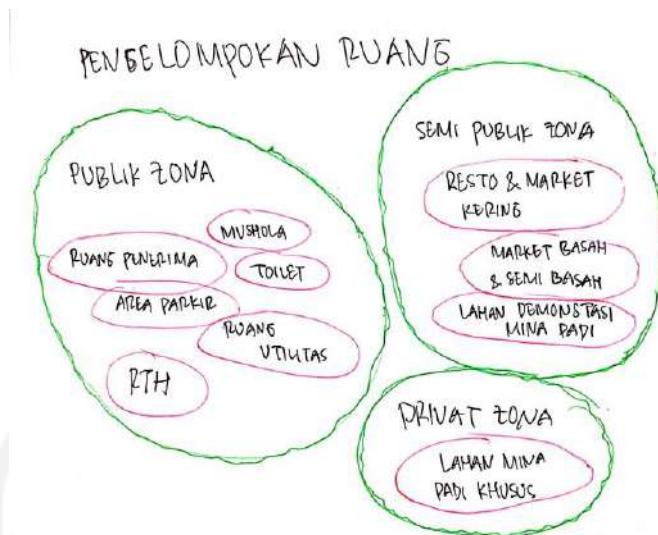 PENGELOMPOKAN RUANG
PUBLIK ZONA
MUSHOLA
RUANG PENERIMA
TOILET
AREA PARKIR
RUANG
UTILITAS
RTH
SEMI PUBLIK ZONA
RESTO & MARKET
KERING
MARKET BASAH
& SEMI BASAH
LAHAN DEMONSTASI
MINA PADI
PRIVAT ZONA
LAHAN MINA
PADI KHUSUS